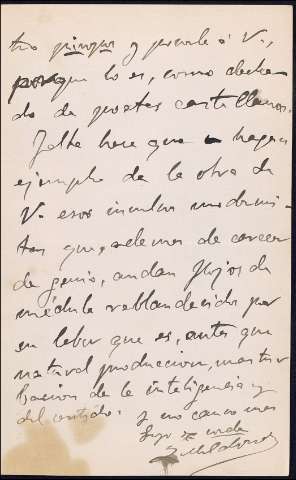 tros piropos y ponerle á V.,
porque lo es, como decha-
do de poetas castellanos.
Falta hace que hagan
ejemplo de la obra de
V. esos incultos modernis-
tas que, además de carecer
de genio, andan flojos de
médula reblandecida por
en labor que es, antes que
natural produccion, mastur
bacion de la inteligencia y
del sentido. Y no canso mas
Suyo